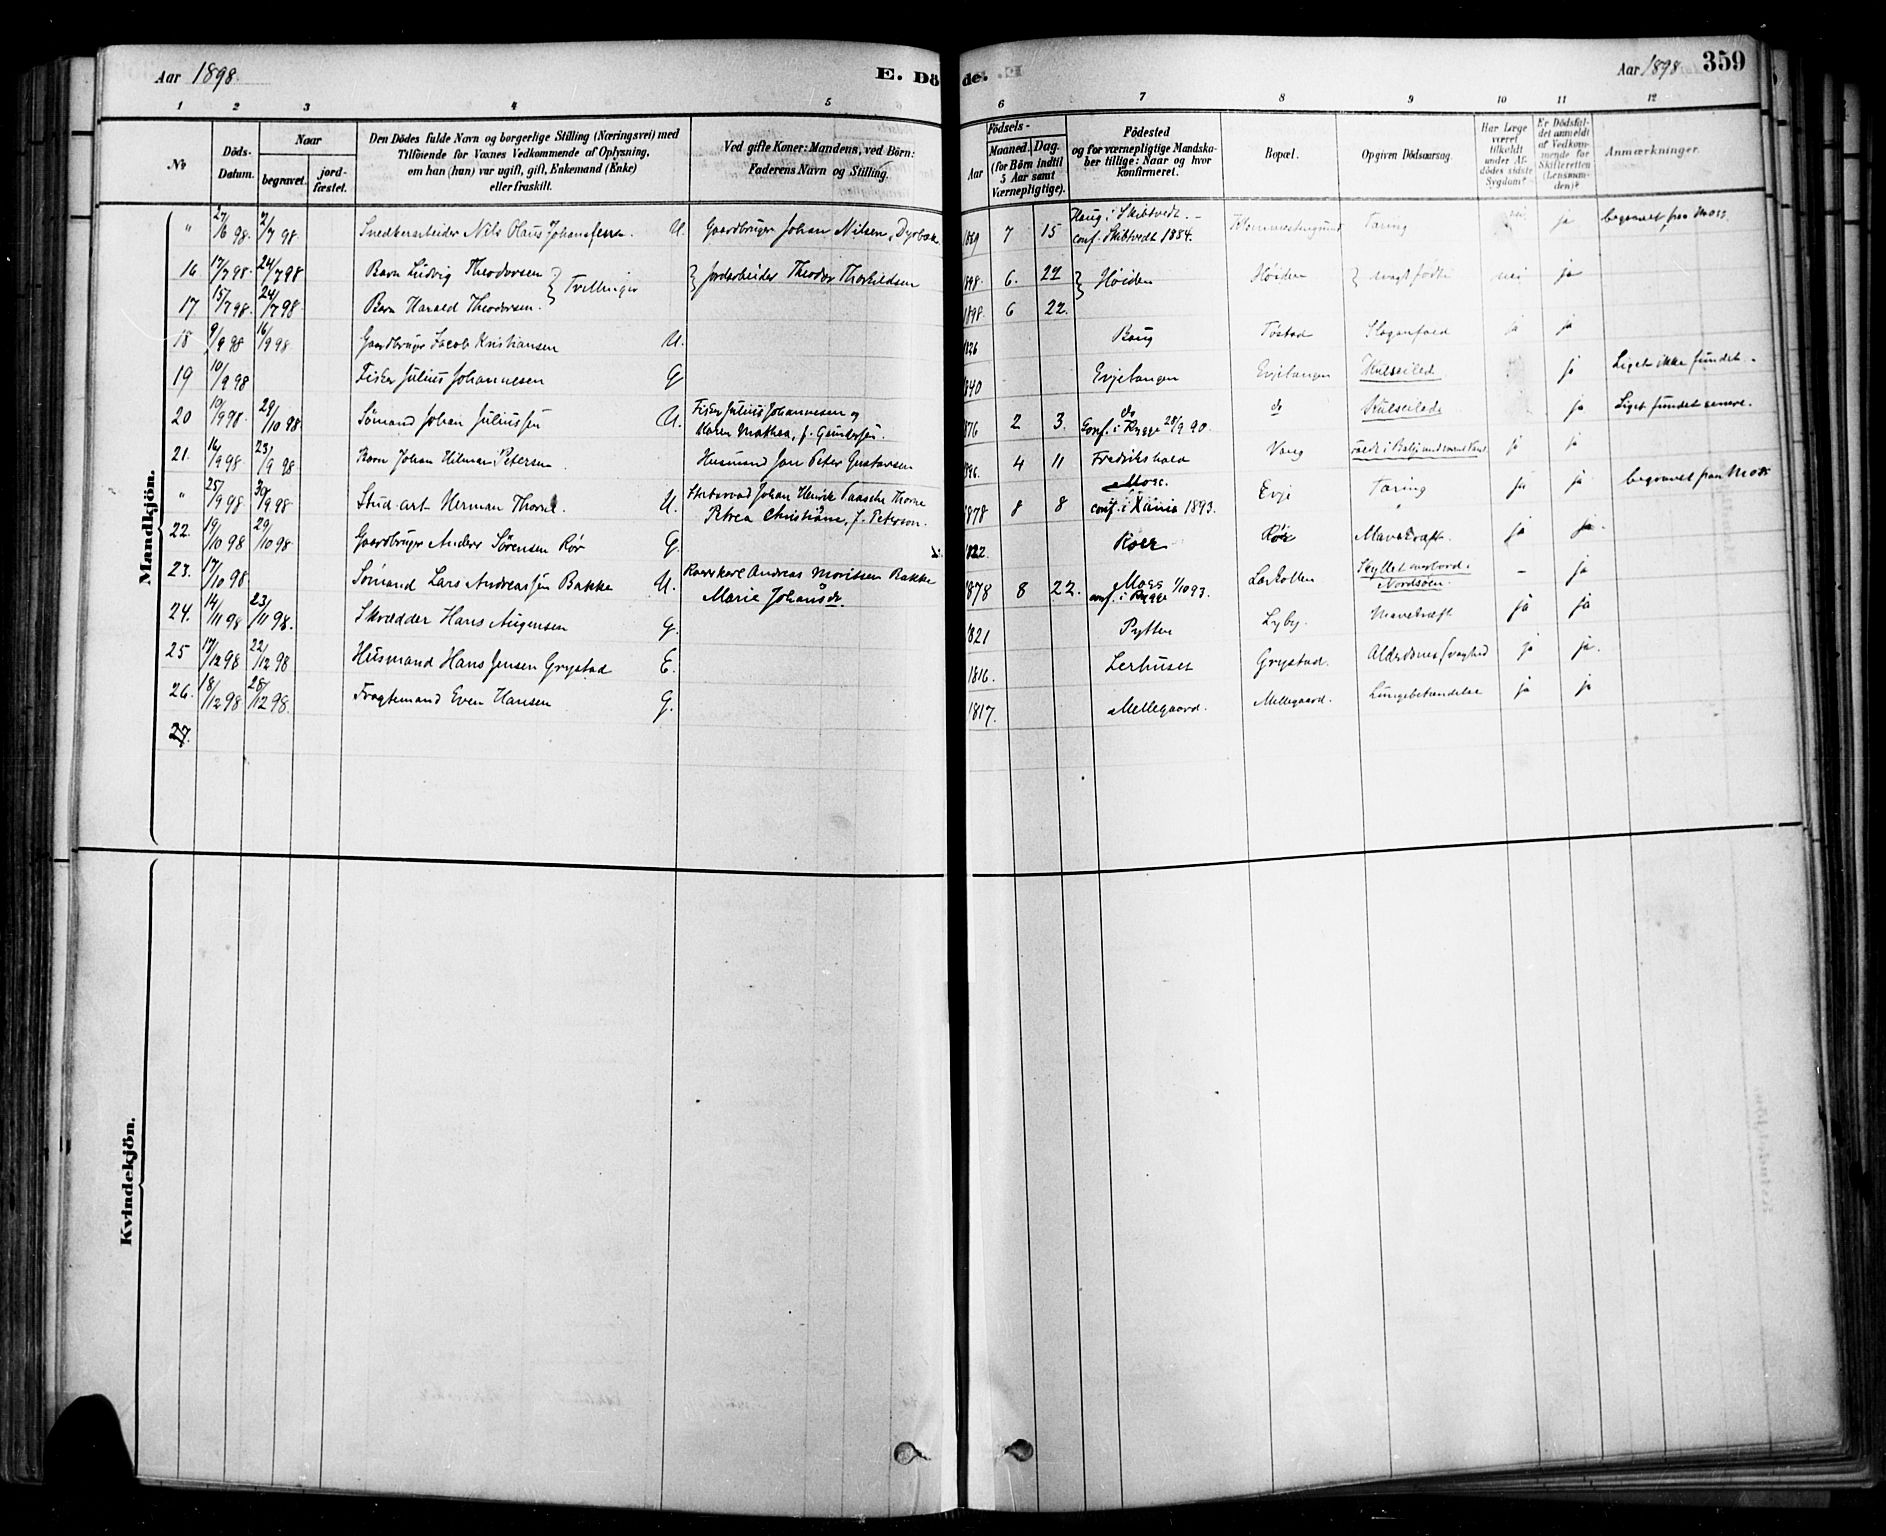 Aar 1898.
E. Dö
de.
Aar 1898
359
1 2 3 4 5 6 7 8 9 10 11 12
No
Döds-
Datum.
Naar
begravet.
jord-
fæstet.
Den Dödes fulde Navn og borgerlige Stilling (Næringsvei) med
Tilföiende for Voxnes Vedkommende af Oplysning,
om han (hun) var ugift, gift, Enkemand (Enke)
eller fraskilt.
Ved gifte Koner: Mandens, ved Börn:
Faderens Navn og Stilling.
Födsels-
Aar
Maaned.
Dag.
(for Börn indtil
5 Aar samt
Værnepligtige).
Födested
og for værnepligtige Mandska-
ber tillige: Naar og hvor
konfirmeret.
Bopæl.
Opgiven Dödsaarsag.
Har Læge
været
tilkaldt
under Af-
dödes sidste
Sygdom?
Er Dödsfal-
det anmeldt
af Vedkom-
mende for
Skifteretten
(Lensman-
den)?
Anmærkninger.
Mandkjön.
" 27/6 98. 2/7 98 Snedkerarbeider Nils Olaus Johanssen U. Gaardbruger Johan Nilsen, Dyrbæk 1869 7 15 Haug i Skibtvedt. - conf. Skibtvedt 1884. Tæring nei ja begravet fra Moss
16 17/7 98. 24/7 98 Barn Ludvig Theodorsen } Tvillinger } Jordarbeider Theodor Thorkildsen 1898. 6. 22 } Høiden Høiden } svagt fødte nei ja
17 15/7 98. 24/7 98 Barn Harald Theodorsen. 1898. 6 22.
18 9/9 98 16/9 98 Gaardbruger Jacob Kristiansen U. 1826 Tøstad ja ja
19 10/9 98 Fisker Julius Johannesen G 1840 Evjetangen Evjetangen Kulseilede ja Liget ikke fundet.
20 10/9 98. 29/10 98. Sømand Johan Juliussen U. Fisker Julius Johannesen og Karen Mathea, f. Gundersen. 1876 2 3. do Conf. i Rygge 28/9 90. do Kulseilede ja Liget fundet senere.
21. 16/9 98 23/9 98 Barn Johan Hilmar Petersen Husmand Jan Peter Gustavsen 1896. 4 11 Fredrikshald Vang ja ja
" 25/9 98 30/9 98 Stud. art. Herman Thorne. U. Statsraad Johan Henrik Paasche Thorne Petrea Christiane, f. Peterson. 1878 8 8 Moss. conf. i Xania 1893. Evje Tæring ja ja begravet fra Moss
22. 19/10 98 29/10 98. Gaardbruger Anders Sørensen Rør G. 1822. Roer Rør Mavekræft. ja ja.
23. 17/10 98 Sømand Lars Andreassen Bakke U. Andreas Moritsen Bakke Marie Johansdr. 1878 8 22. Moss conf. i Rygge 1/10 93. Larkollen Skyllet overbord i Nordsøen. - ja
24. 14/11 98 23/11 98. Skrædder Hans Augensen G. 1821 Pytten Lyby. Mavekræft ja ja
25 17/12 98 22/12 98 Husmand Hans Jensen Grystad E. 1816. Lerhuset Grystad. Alderdomssvaghed ja ja.
26. 18/12 98 28/12 98. Fragtemand Even Hansen G. 1817. Mellegaard. Mellegaard. Lungebetændelse ja ja
27.
Kvindekjön.